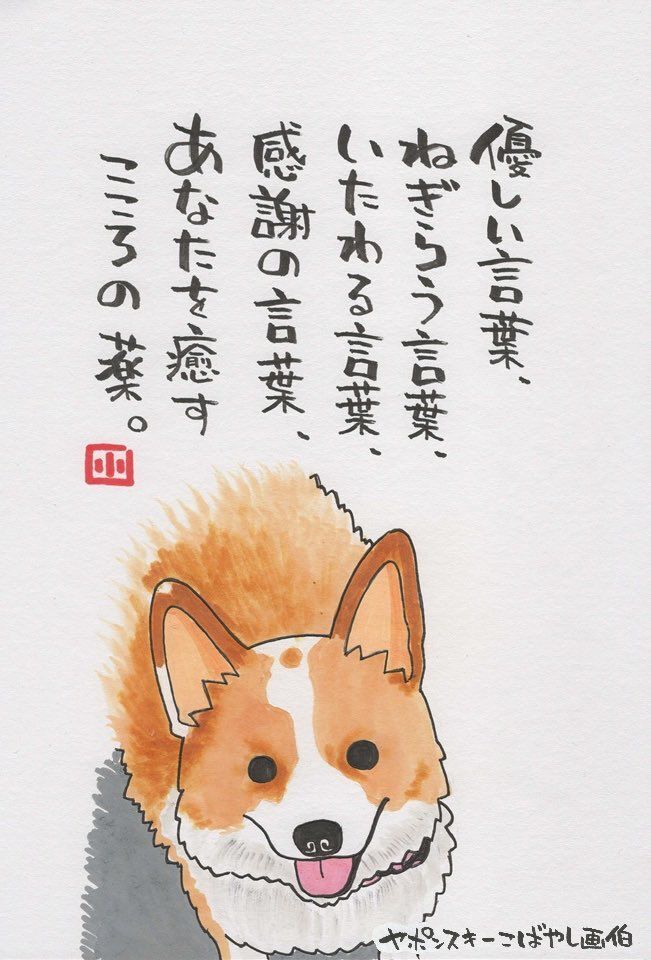 優しい言葉、
ねぎらう言葉、
いたわる言葉、
感謝の言葉、
あなたを癒す
こころの薬。
小
ヤポンスキーこばやし画伯